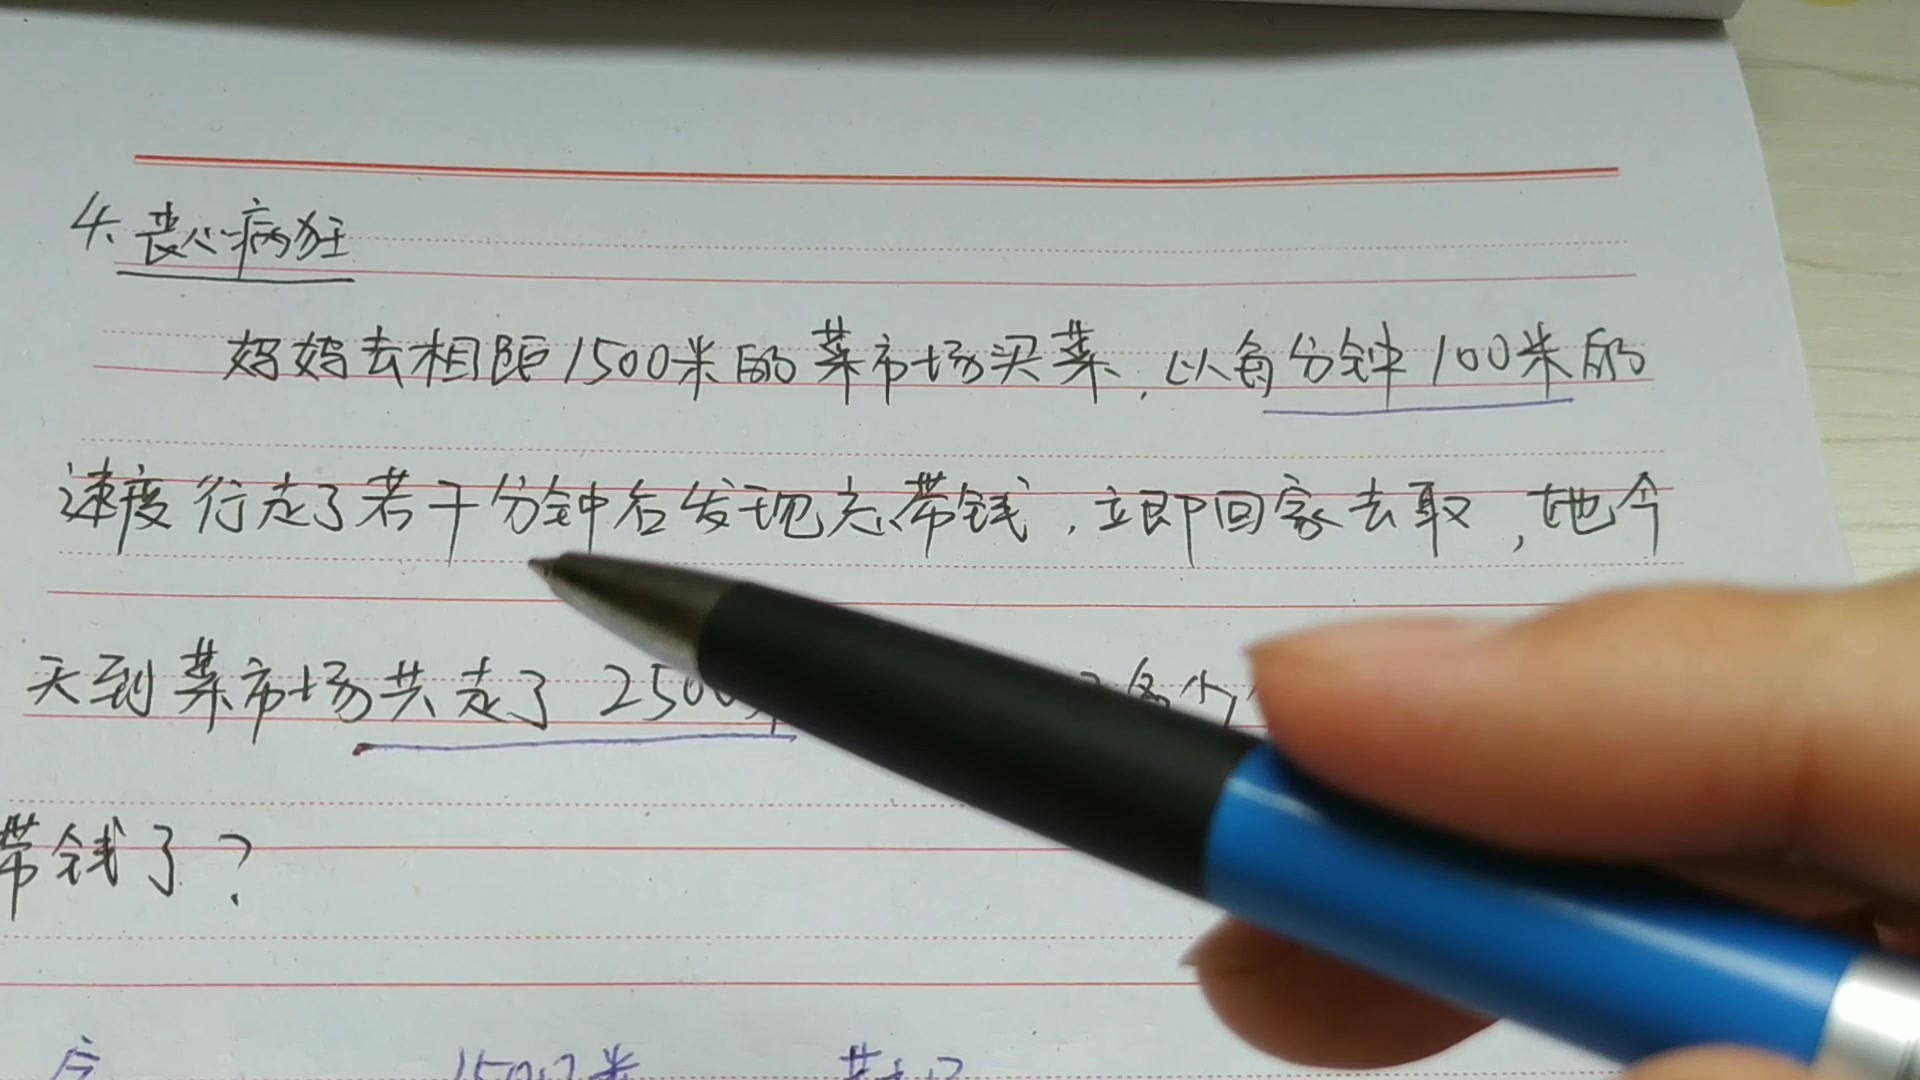 4. 丧心病狂
妈妈去相距1500米的菜市场买菜,以每分钟100米的
速度行走了若干分钟后发现忘带钱,立即回家去取,她今
天到菜市场共走了2500米
带钱了?
1500米 共走了